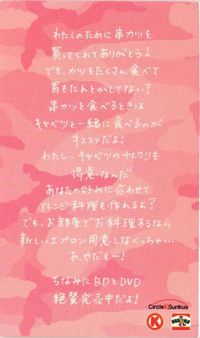 わたしのために串カツを
買ってくれてありがとう!
でも、カツをたくさん食べて
胃もたれとかしてない?
串カツを食べるときは
キャベツと一緒に食べるのが
オススメだよ!
わたし、キャベツの千切りも
得意なんだ
あなたの好みに合わせて
アレンジ料理も作れるよ?
でも、お部屋でお料理するなら
新しいエプロン用意しなくっちゃ…
あ、やだもー!
ちなみにBDとDVD
絶賛発売中だよ!
CircleK Sunkus
K